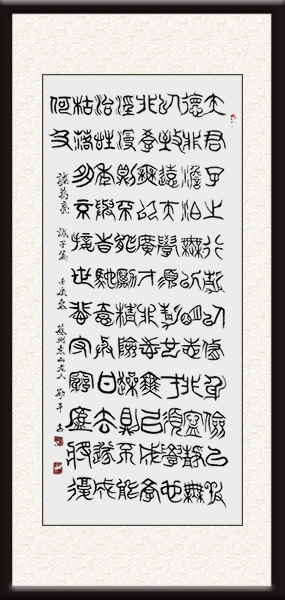 夫君子之行靜以脩身儉以養
德非澹泊無以明志非寧靜無
以致遠夫學須靜也才須學也
非學無以廣才非志無以成學
淫漫則不能勵精險躁則不能
治性年與時馳意與歲去遂成
枯落多不接世悲守窮廬將復
何及
諸葛亮 誡子篇 壬辰 蘇州東山老人